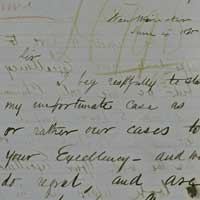 June 4
Sir
I beg respfully to
my unfortunate case as
or rather our cases to
Your Excellency — and
do regret, and are